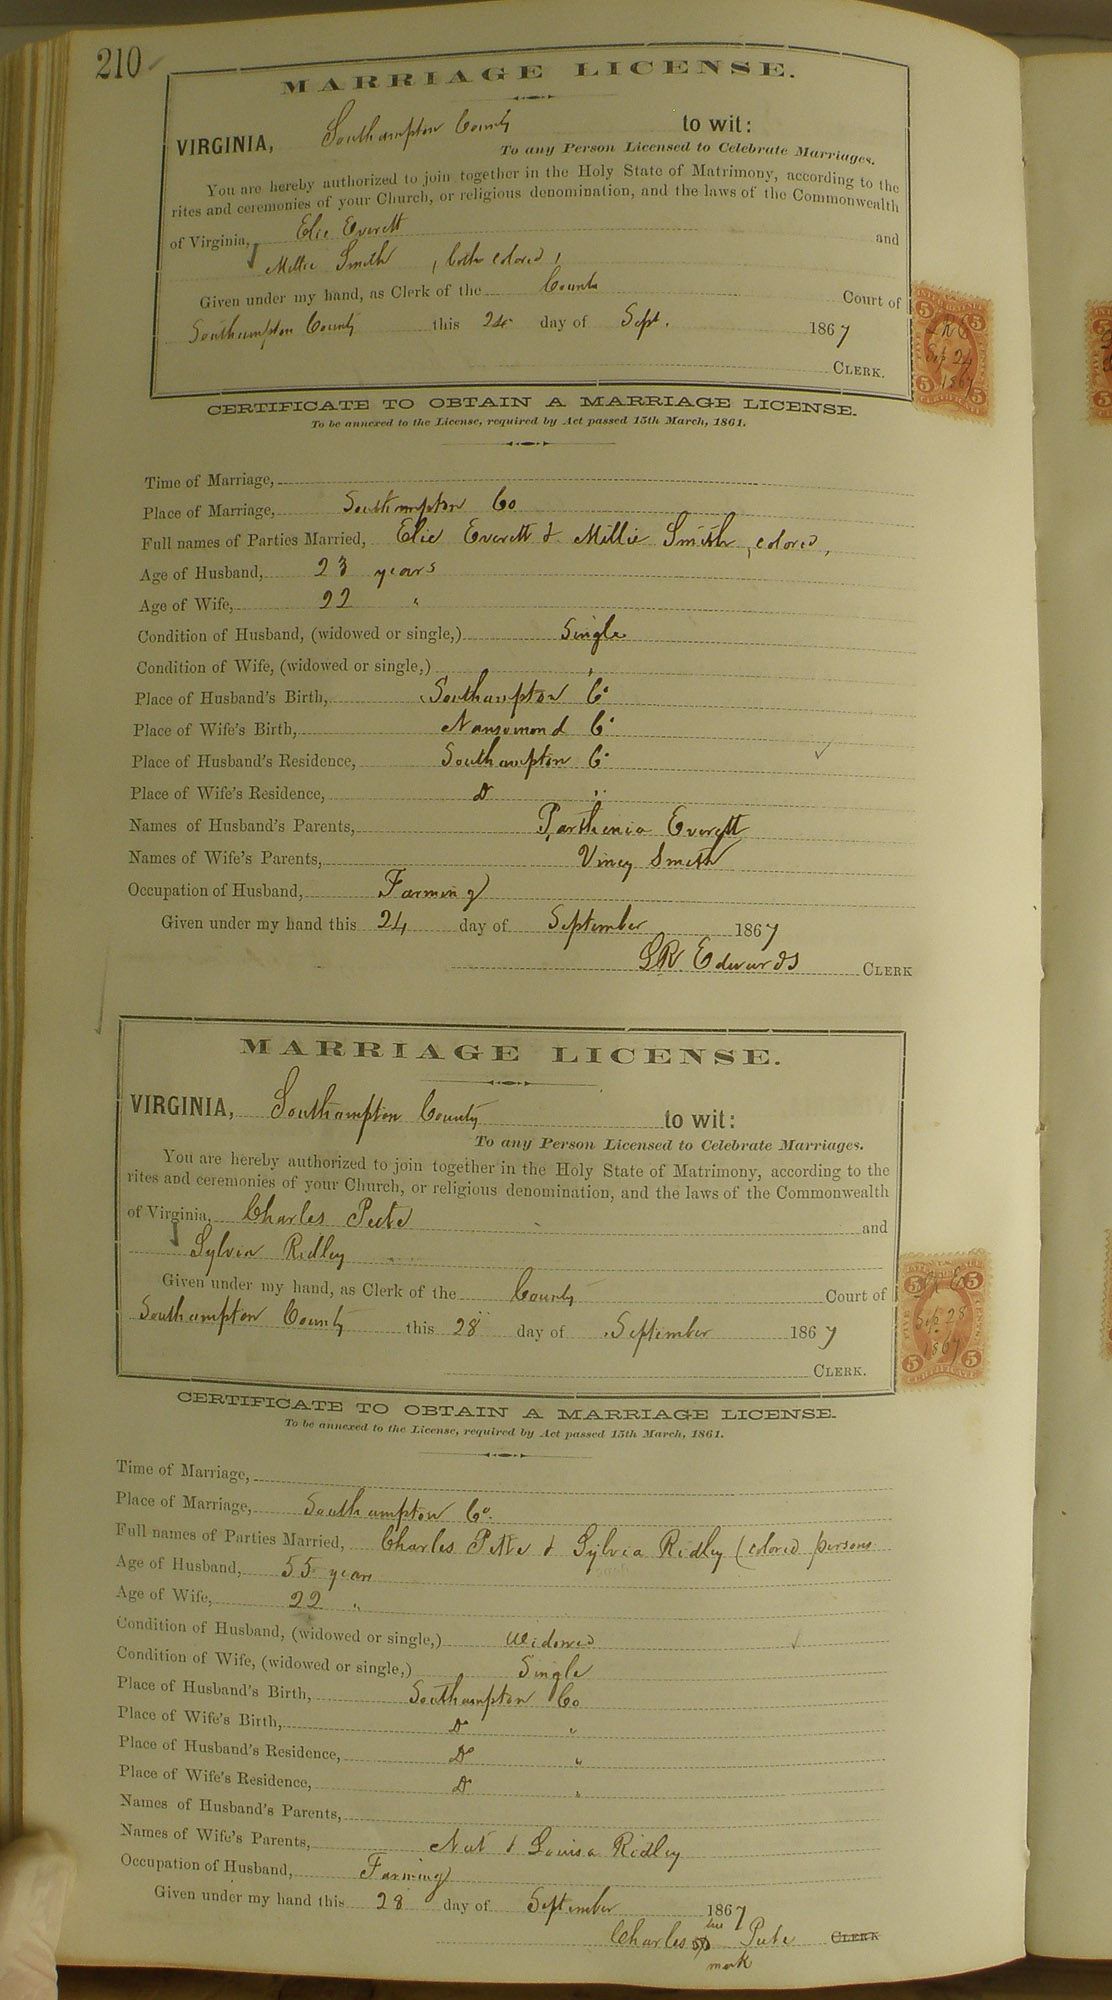 210
MARRIAGE LICENSE.
VIRGINIA, Southampton County to wit:
To any Person Licensed to Celebrate Marriages.
You are hereby authorized to join together in the Holy State of Matrimony, according to the
rites and ceremonies of your Church, or religious denomination, and the laws of the Commonwealth
of Virginia, Elie Everett and
Millie Smith, (both colored)
Given under my hand, as Clerk of the County Court of
Southampton County this 24 day of Sept. 1867
CLERK.
Sep 24
1867
CERTIFICATE TO OBTAIN A MARRIAGE LICENSE.
To be annexed to the License, required by Act passed 15th March, 1861.
Time of Marriage,
Place of Marriage, Southampton Co
Full names of Parties Married, Elie Everett & Millie Smith, colored,
Age of Husband, 23 years
Age of Wife, 22 "
Condition of Husband, (widowed or single,) Single
Condition of Wife, (widowed or single,) "
Place of Husband's Birth, Southampton Co
Place of Wife's Birth, Nansemond Co
Place of Husband's Residence, Southampton Co
Place of Wife's Residence, Do "
Names of Husband's Parents, Parthenia Everett
Names of Wife's Parents, Viney Smith
Occupation of Husband, Farming
Given under my hand this 24 day of September 1867
LR Edwards CLERK
MARRIAGE LICENSE.
VIRGINIA, Southampton County to wit:
To any Person Licensed to Celebrate Marriages.
You are hereby authorized to join together in the Holy State of Matrimony, according to the
rites and ceremonies of your Church, or religious denomination, and the laws of the Commonwealth
of Virginia, Charles Pete and
Sylvia Ridley
Given under my hand, as Clerk of the County Court of
Southampton County this 28 day of September 1867
CLERK.
Sep 28
1867
CERTIFICATE TO OBTAIN A MARRIAGE LICENSE.
To be annexed to the License, required by Act passed 15th March, 1861.
Time of Marriage,
Place of Marriage, Southampton Co.
Full names of Parties Married, Charles Pette & Sylvia Ridley (colored persons
Age of Husband, 55 years
Age of Wife, 22 "
Condition of Husband, (widowed or single,) Widowed
Condition of Wife, (widowed or single,) Single
Place of Husband's Birth, Southampton Co
Place of Wife's Birth, Do "
Place of Husband's Residence, Do "
Place of Wife's Residence, Do "
Names of Husband's Parents,
Names of Wife's Parents, Nat & Louisa Ridley
Occupation of Husband, Farming
Given under my hand this 28 day of September 1867
his
Charles Pete CLERK
mark